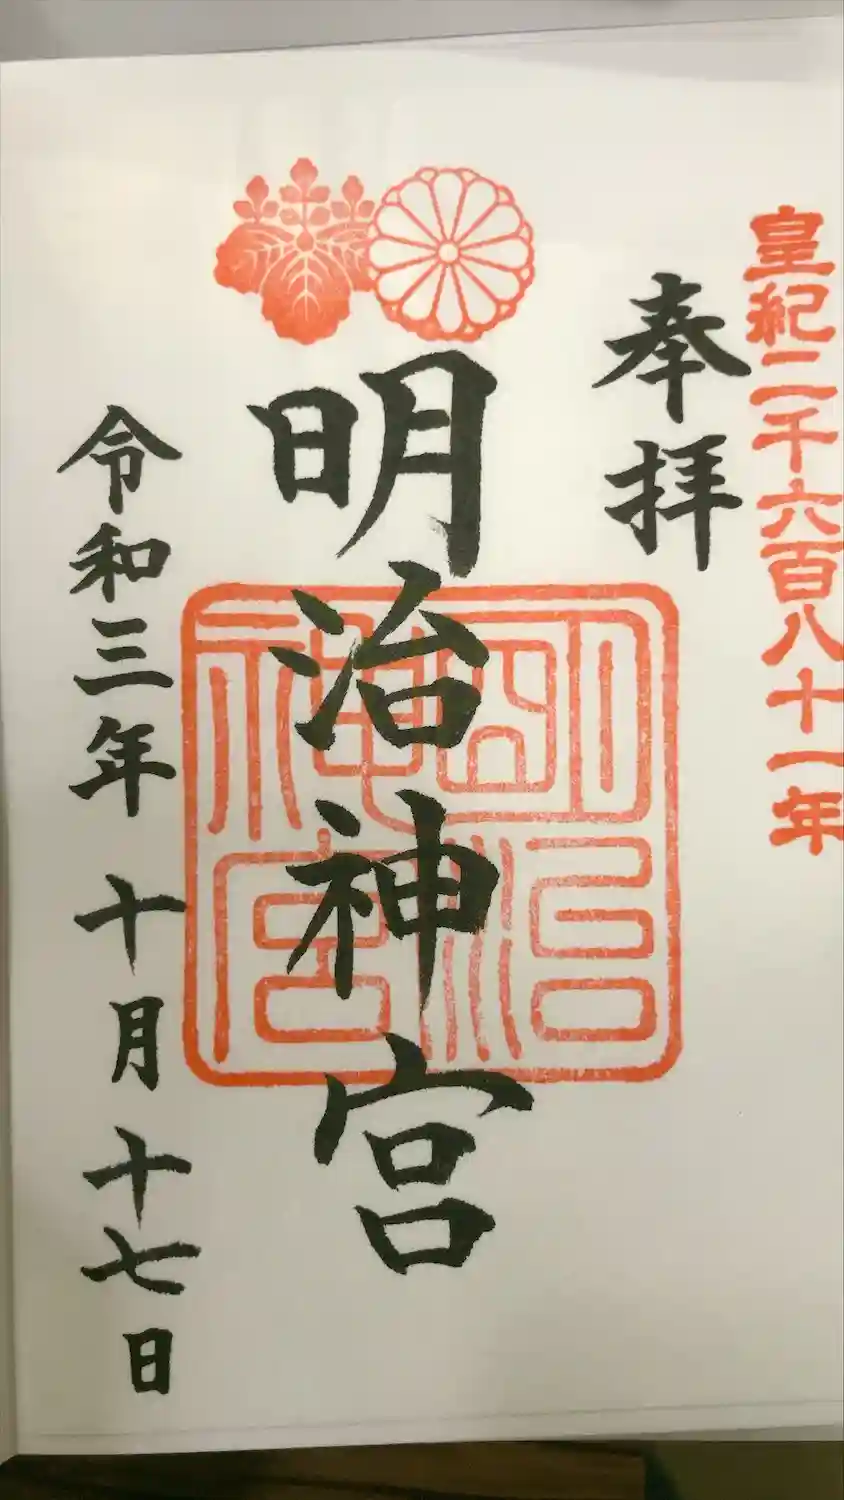 皇紀二千六百八十一年
奉拝
明治神宮
明治神宮
令和三年 十月 十七日